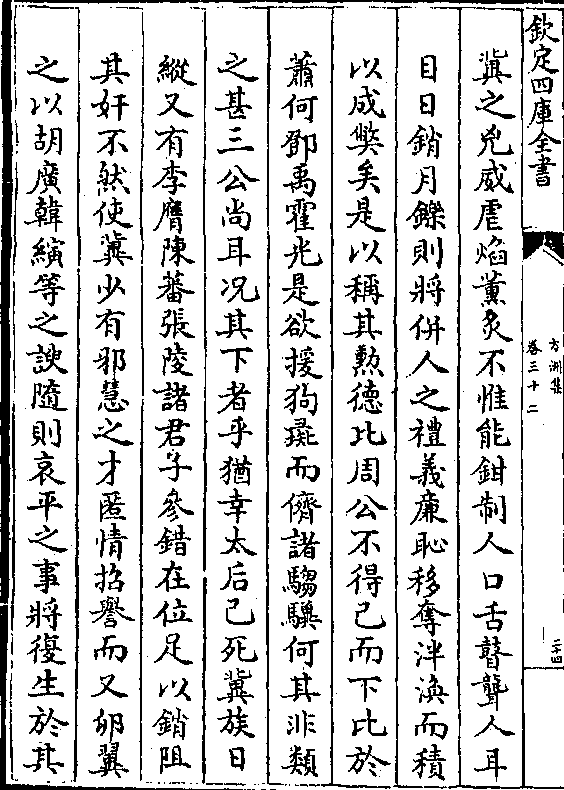 欽定四庫全書
方洲集
卷三十二
二十四
冀之兇威虐焰薰炙不惟能鉗制人口舌瞽聾人耳
目日銷月鑠則將併人之禮義廉恥移奪泮渙而積
以成獘矣是以稱其勲德比周公不得已而下比於
蕭何鄧禹霍光是欲援狗彘而儕諸騶驥何其非類
之甚三公尚耳况其下者乎猶幸太后已死冀族日
縱又有李膺陳蕃張陵諸君子參錯在位足以銷阻
其奸不然使冀少有邪慧之才匿情招譽而又卵翼
之以胡廣韓縯等之諛隨則哀平之事將復生於其